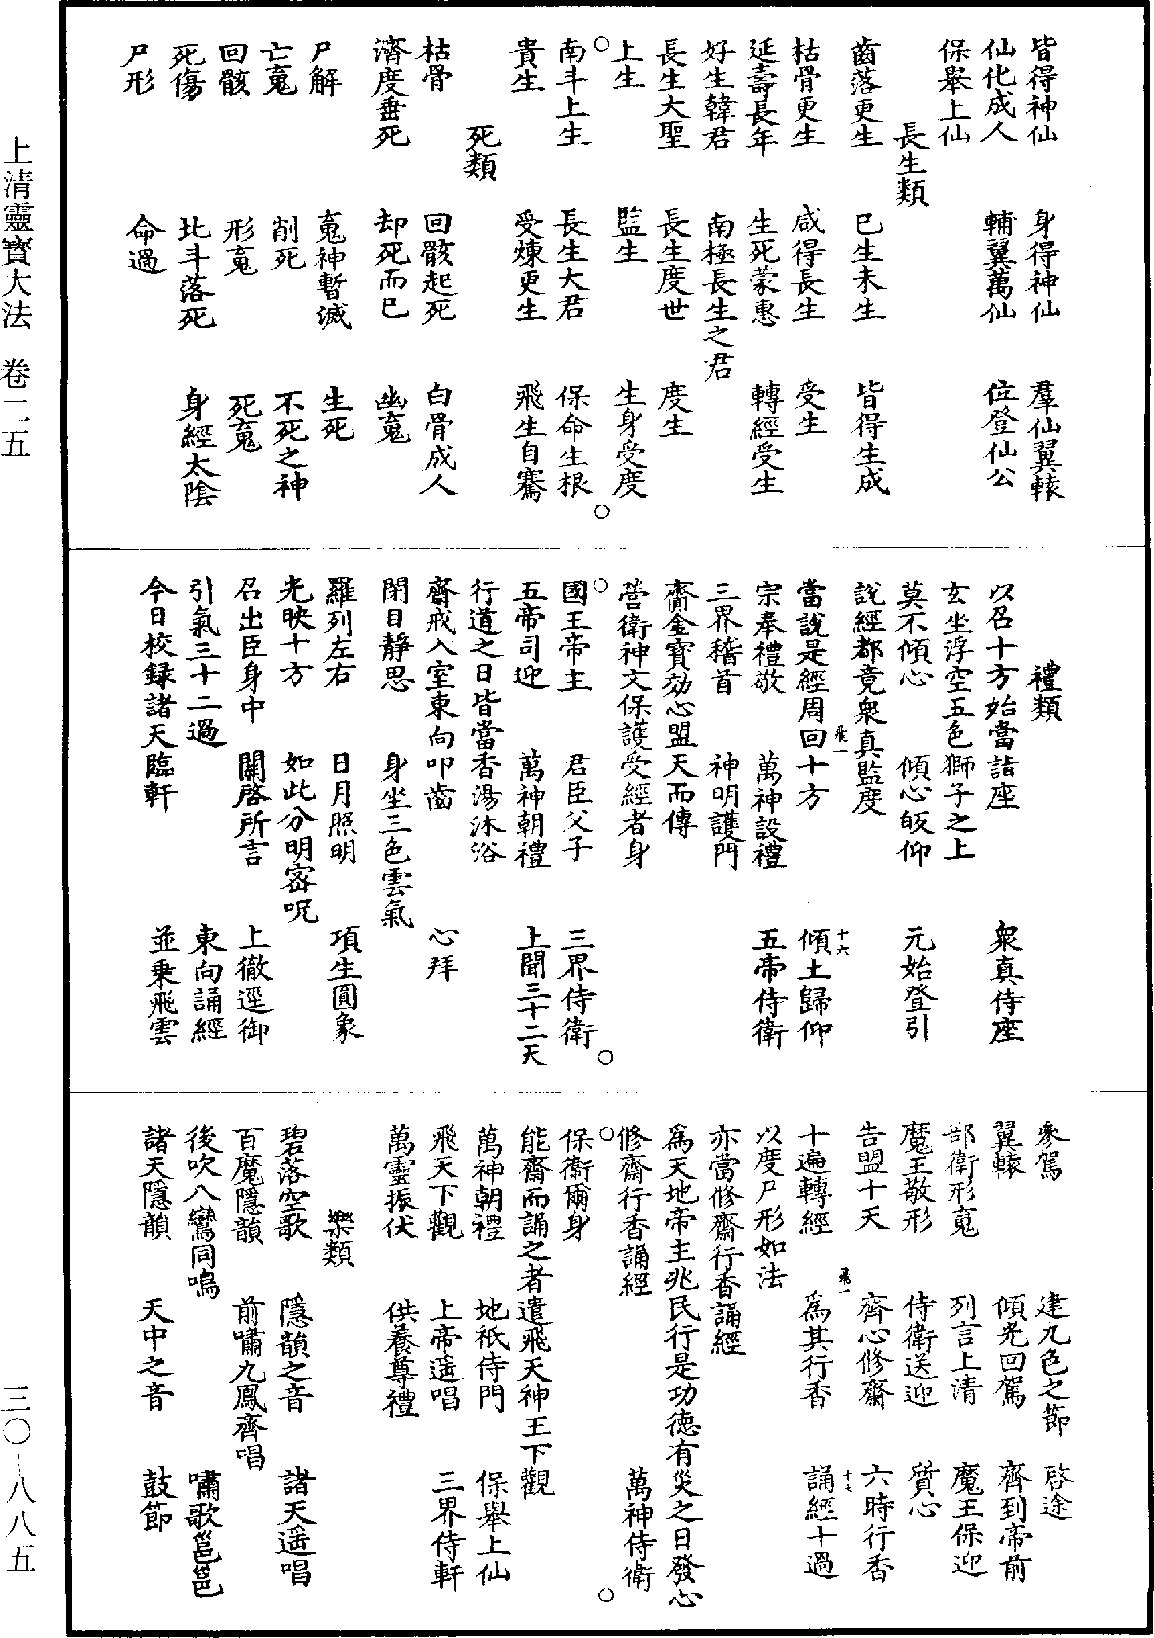 皆得神仙　身得神仙　羣仙翼轅
仙化成人　輔翼萬仙　位登仙公
保舉上仙
長生類
齒落更生　已生未生　皆得生成
枯骨更生　咸得長生　受生
延壽長年　生死蒙惠　轉經受生
好生韓君　南極長生之君
長生大聖　長生度世　度生
上生　監生　生身受度
南斗上生　長生大君　保命生根
貴生　受煉更生　飛生自騫
死類
枯骨　回骸起死　白骨成人
濟度垂死　却死而已　幽䰟
尸解　䰟神暫滅　生死
亡䰟　削死　不死之神
回骸　形䰟　死䰟
死傷　北斗落死　身經太陰
尸形　命過
禮類
以召十方始當詣座　衆真侍座
玄坐浮空五色獅子之上
莫不傾心　傾心皈仰　元始登引
說經都竟衆真監度
當說是經周回十方　傾土歸仰
宗奉禮敬　萬神設禮　五帝侍衛
三界稽首　神明護門
齎金寶効心盟天而傳
營衛神文保護受經者身
國王帝主　君臣父子　三界侍衛
五帝司迎　萬神朝禮　上聞三十二天
行道之日皆當香湯沐浴
齋戒入室東向叩齒　心拜
閉目靜思　身坐三色雲氣
羅列左右　日月照明　項生圓象
光映十方　如此分明密呪
召出臣身中　關啓所言　上徹逕御
引氣三十二過　東向誦經
今日校録諸天臨軒　並乘飛雲
參駕　建九色之節　啓途
翼轅　傾光回駕　齊到帝前
部衛形䰟　列言上清　魔王保迎
魔王敬形　侍衛送迎　質心
告盟十天　齊心修齋　六時行香
十遍轉經　爲其行香　誦經十過
以度尸形如法
亦當修齋行香誦經
爲天地帝主兆民行是功德有災之日發心
修齋行香誦經　萬神侍衛
保衛爾身
能齋而誦之者遣飛天神王下觀
萬神朝禮　地祇侍門　保舉上仙
飛天下觀　上帝遥唱　三界侍軒
萬靈振伏　供養尊禮
樂類
碧落空歌　隱韻之音　諸天遥唱
百魔隱韻　前嘯九鳳齊唱
後吹八鸞同鳴　嘯歌邕邕
諸天隱韻　天中之音　鼓節
上清靈寳大法　卷二五
三〇-八八五